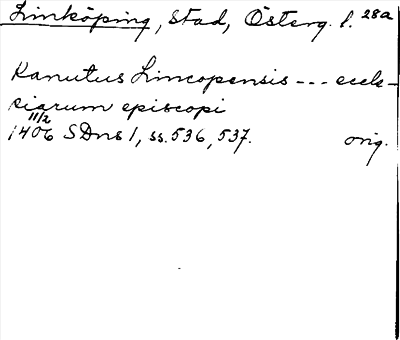 Linköping, Stad, Österg. l. 28a
Kanutus Lincopensis --- eccle-
siarum episcopi
11/2
1406 SDns 1, ss. 536, 537. orig.